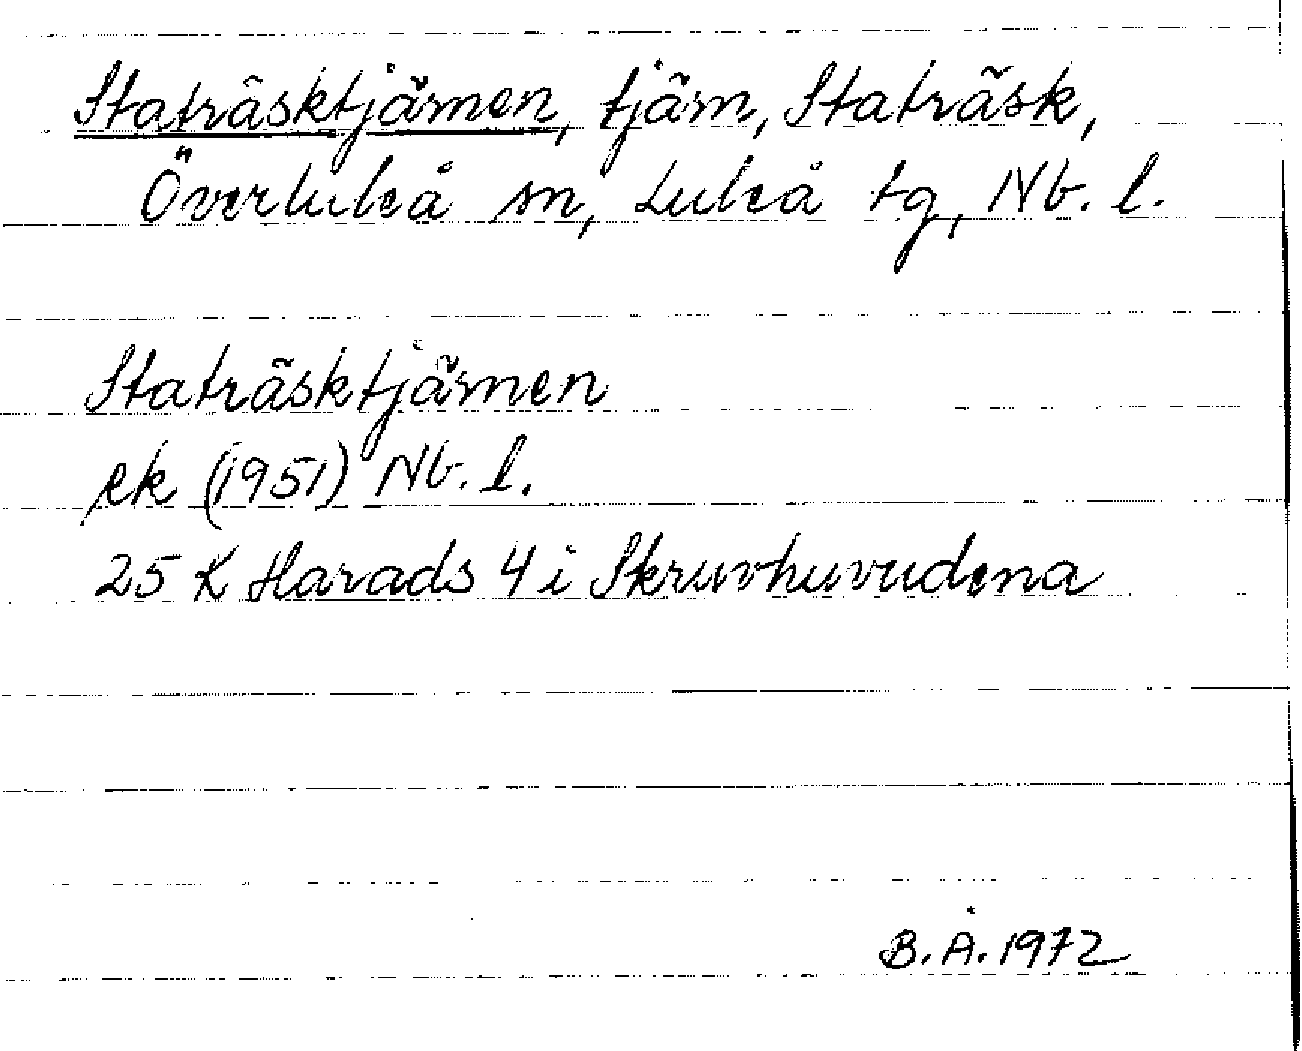 Staträsktjärnen, tjärn, Staträsk,
Överluleå sn, Luleå tg, Nb. l.
Staträsktjärnen
ek (1951) Nb. l.
25 K Harads 4 i Skruvhuvudena
B.Å. 1972